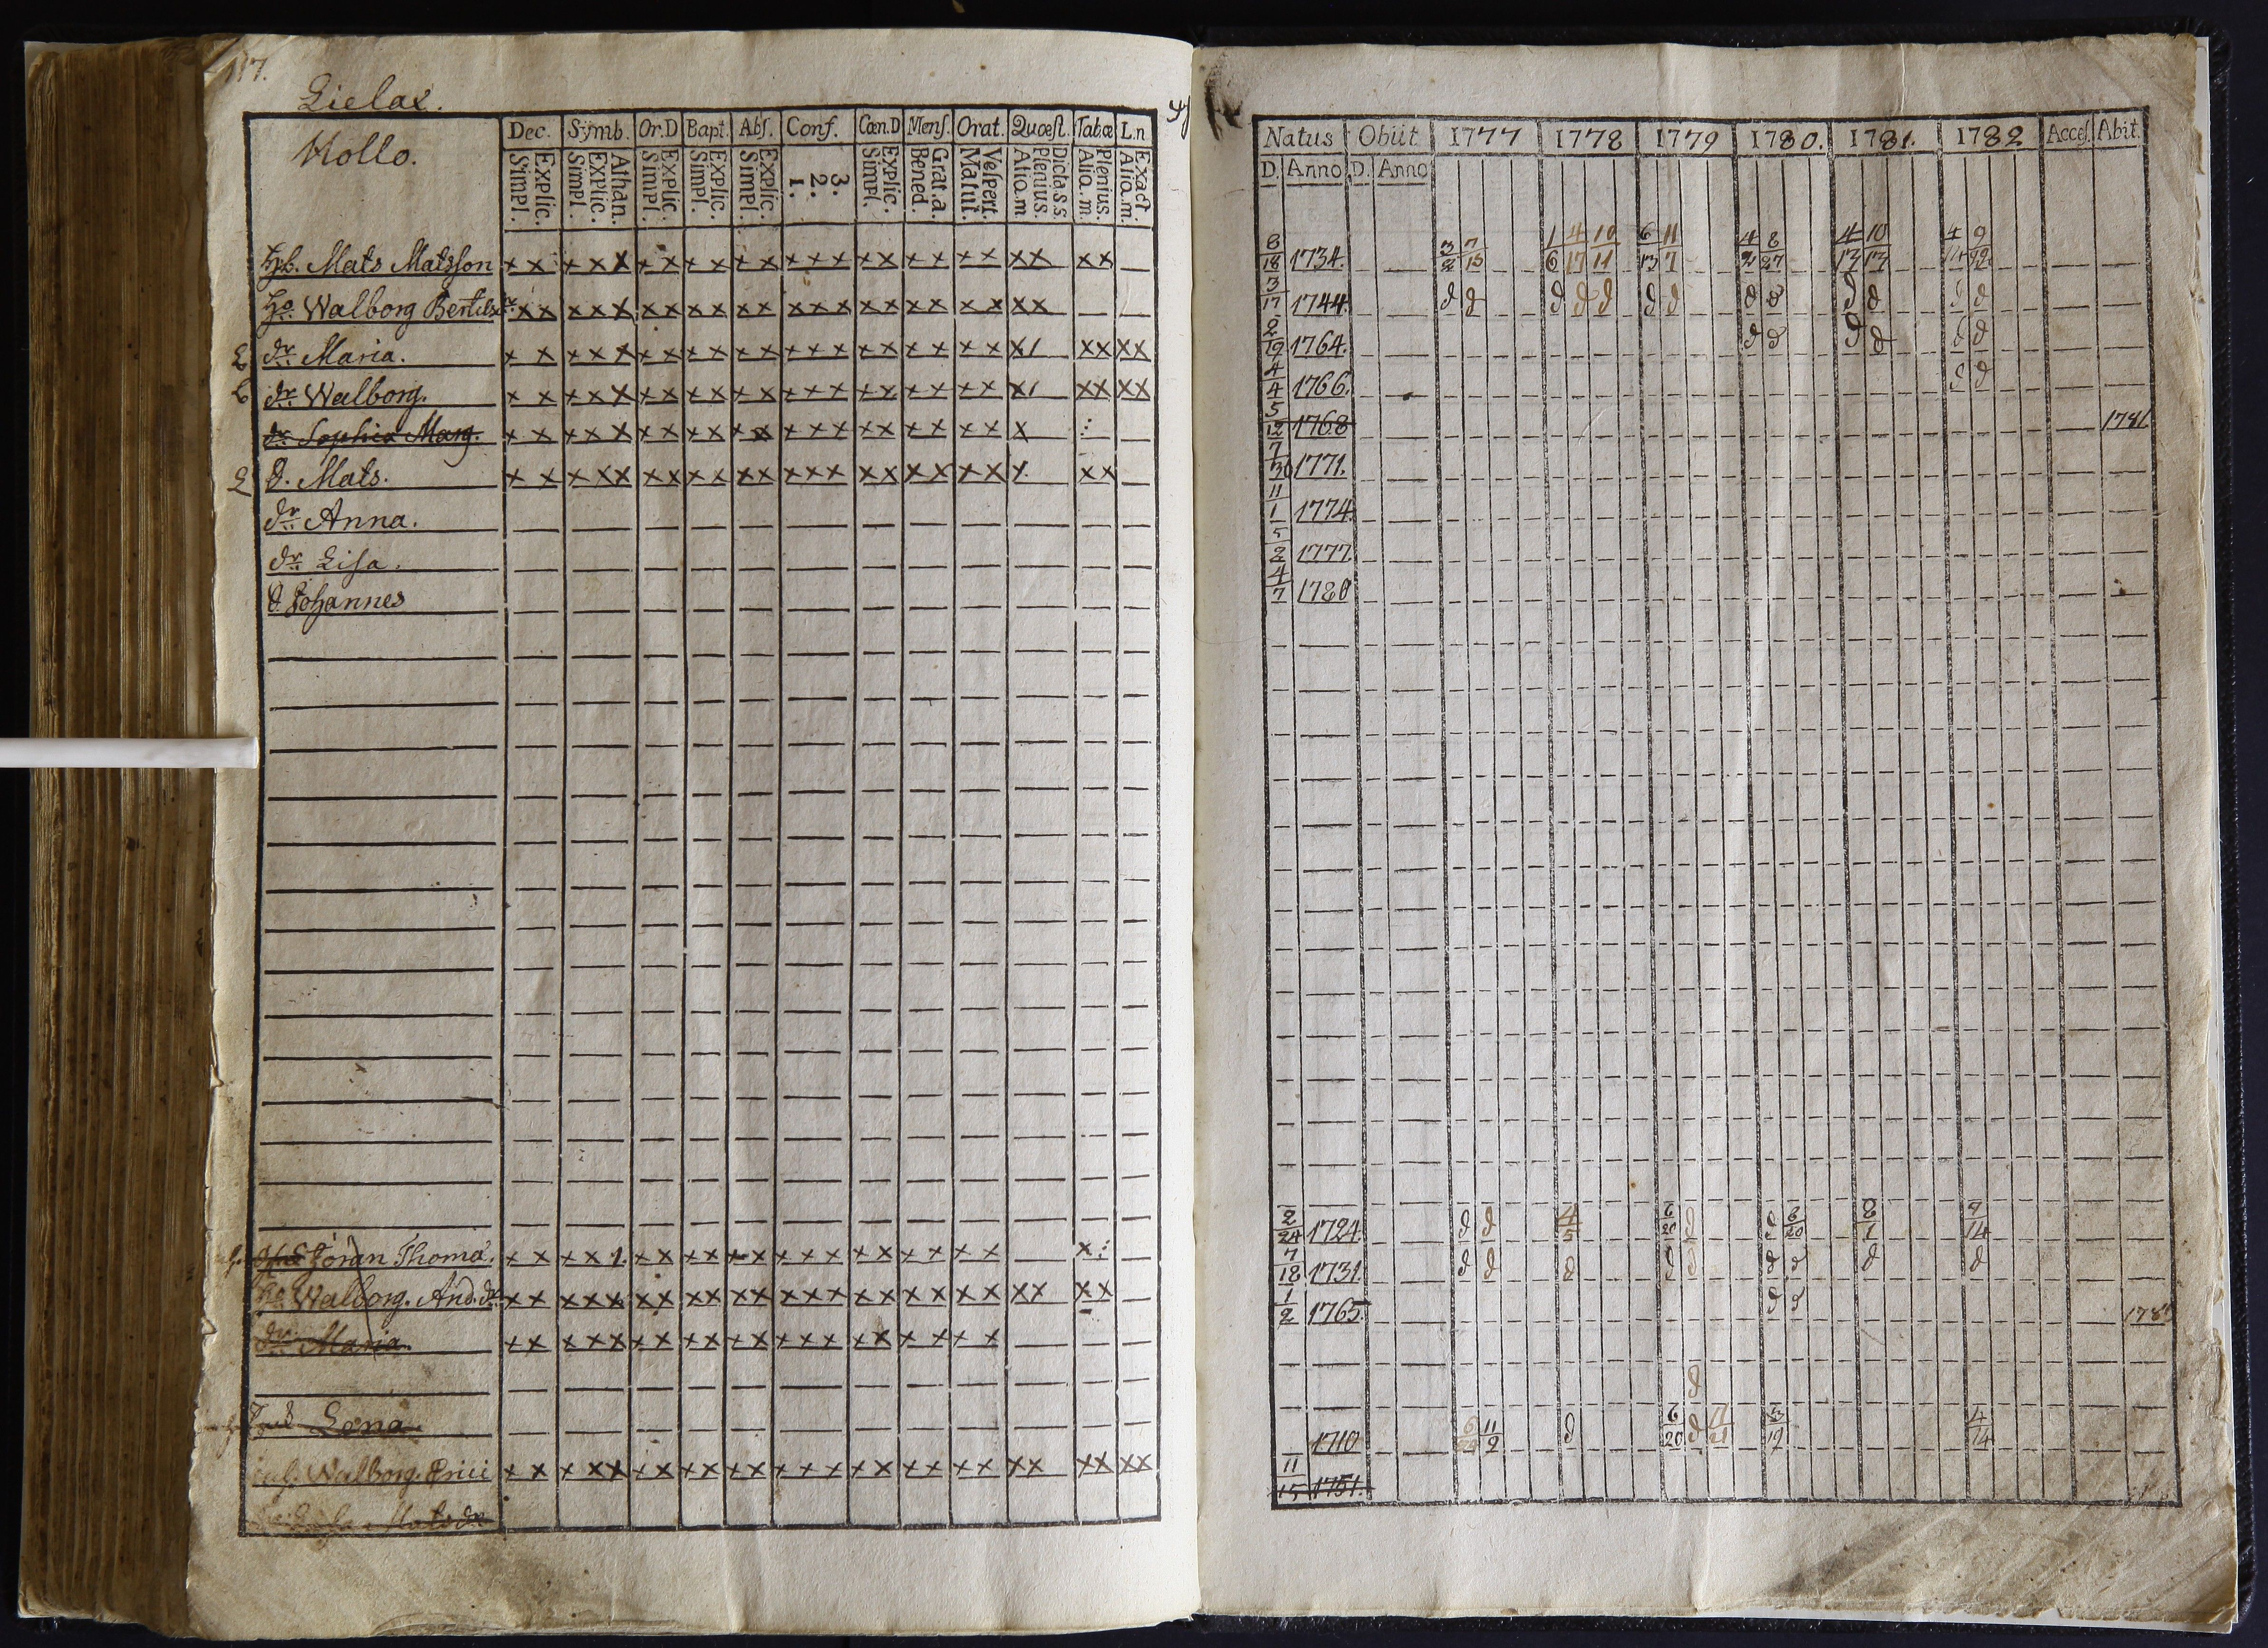 117.
Lielax.
Mollo.
Dec. Symb. Or.D Bapt. Abſ. Conf. Cœn.D Menſ. Orat. Quæſt. Tab.œ L.n
Explic. Simpl. Athan. Explic. Simpl. Explic. Simpl. Explic. Simpl. Explic. Simpl. 3. 2. 1. Explic. Simpl. Grat. a. Bened. Veſpert. Matut. Dicta.s.s Plenius. Alio.m Plenius. Alio.m. Exact Alio.m.
Natus Obiit 1777 1778 1779 1780. 1781. 1782 Acceſ. Abit.
D. Anno D. Anno
Hb. Mats Matsſon x x x x x x x x x x x x x x x x x x x x x x x x x
8/18 1734. 3/2 7/13 1/6 4/17 10/11 6/13 11/7 4/2 8/27 4/13 10/13 4/14 9/22
Ho Walborg Bertilsdr. x x x x x x x x x x x x x x x x x x x x x x x
3/17 1744. d d d d d d d d d d d d d
dr. Maria. x x x x x x x x x x x x x x x x x x x x x x 1 x x x x
2/19 1764. d d d d d d
dr. Walborg. x x x x x x x x x x x x x x x x x x x x x x 1 x x x x
4/4 1766. d d
dr. Sophia Marg. x x x x x x x x x x x x x x x x x x x x x x
5/12 1768 1781
d. Mats. x x x x x x x x x x x x x x x x x x x x x x x x
7/30 1771.
dr. Anna.
11/1 1774.
dr. Lisa.
5/2 1777.
d. Johannes
4/7 1780
Göran Thomæ. x x x x 1. x x x x x x x x x x x x x x x x
2/24 1724. d d 4/5 6/20 d d 6/20 8/1 9/14
Ho Walborg. And.dr x x x x x x x x x x x x x x x x x x x x x x x x x
7/18 1731. d d d d d d d d d
dr. Maria. x x x x x x x x x x x x x x x x x x x x
1/2 1765. d d
d
Lena
1710 11/2 d 6/20 d 11/21 3/19 4/14
Walborg. Erici x x x x x x x x x x x x x x x x x x x x x x x x x x x
11/15 1751.
Matsdr